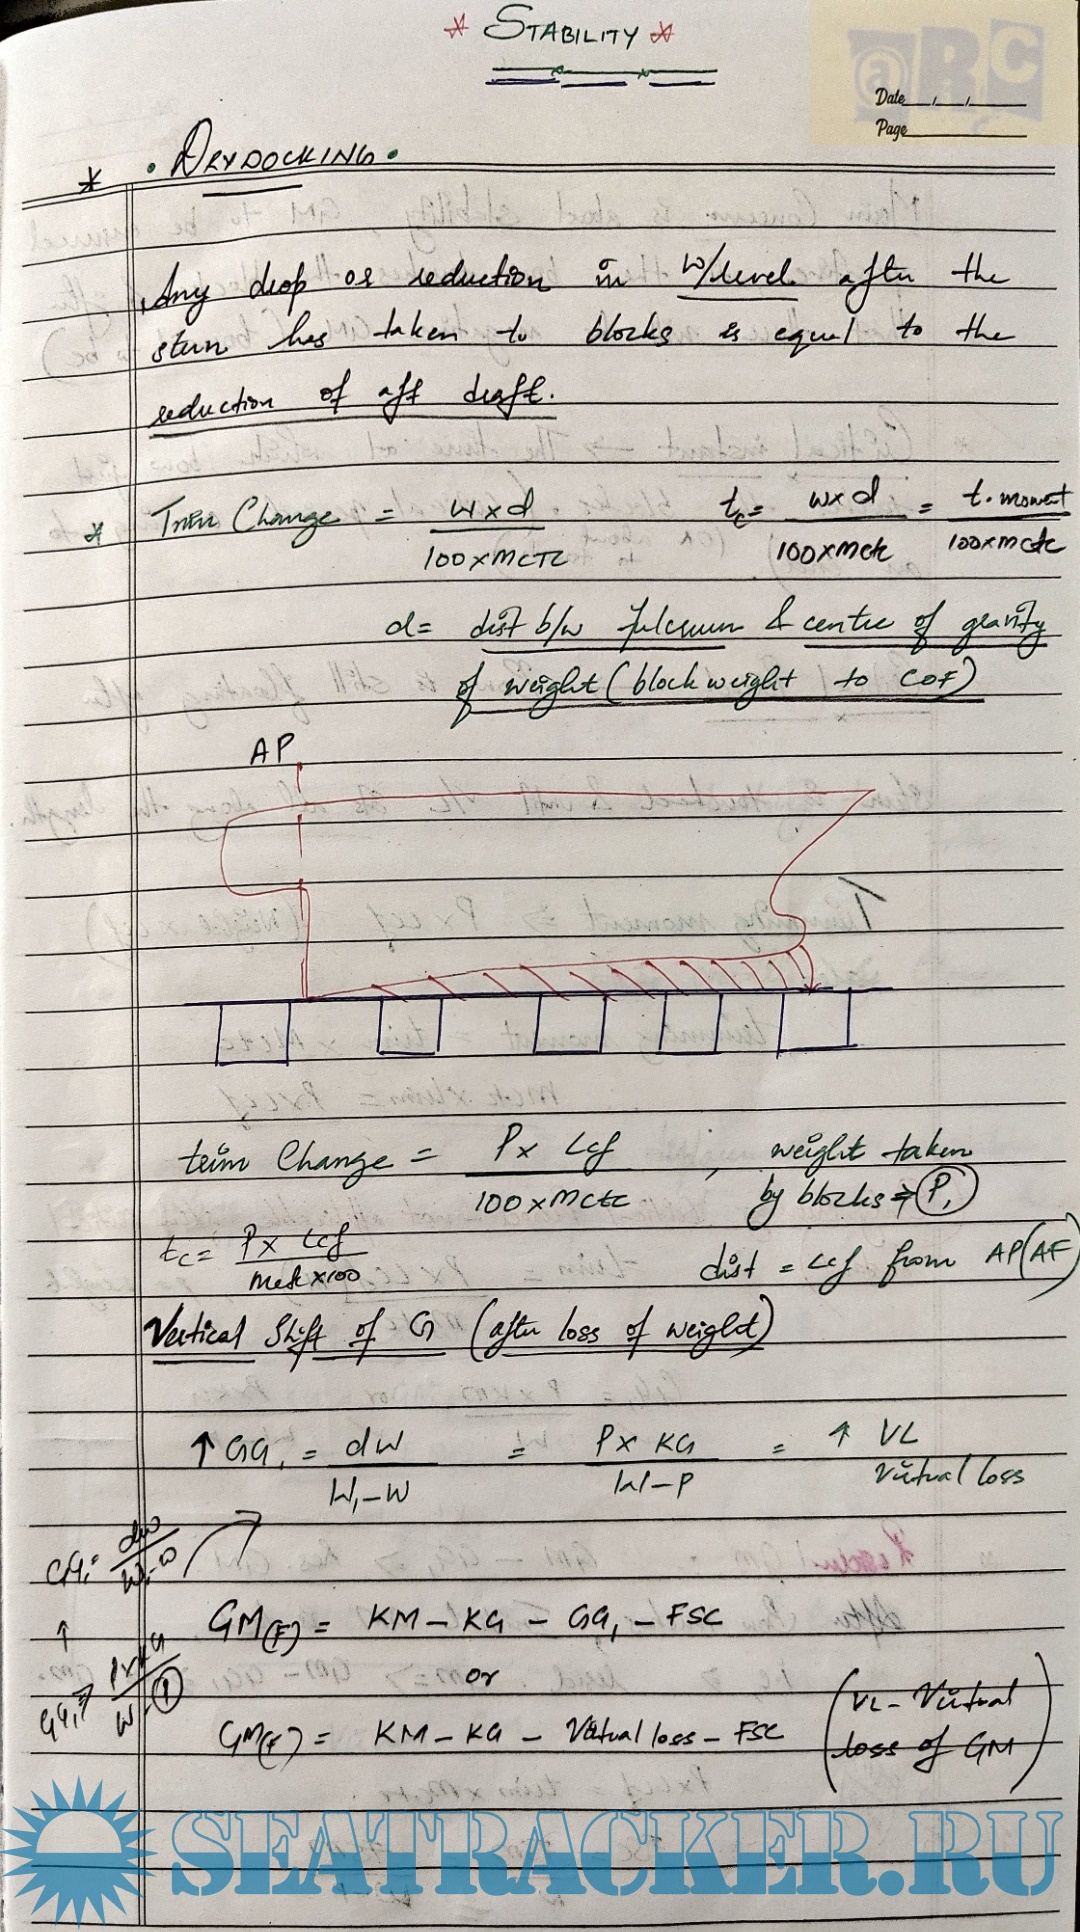 * STABILITY *
aRC
Date
Page
* • DRYDOCKING •
Any drop or reduction in W/level after the
stern has taken to blocks is equal to the
reduction of aft draft.
* Trim Change = W x d / 100 x MCTC tc = w x d / 100 x mctc = t. moment / 100 x mctc
d = dist b/w fulcrum & centre of gravity
of weight (block weight to COF)
AP
trim Change = P x Lcf / 100 x MCTC , weight taken
by blocks ⇒ P,
tc = P x Lcf / mctc x 100 dist = Lcf from AP (AF)
Vertical Shift of G (after loss of weight)
↑ GG₁ = dW / W₁ - W = P x KG / W - P = ↑ VL
Virtual loss
GG₁ = dw / W₁ - w
↑
GG₁ ⇒ P x KG / W - P
GM(F) = KM - KG - GG₁ - FSC
or
GM(F) = KM - KG - Virtual loss - FSC (VL - Virtual
loss of GM)
SEATRACKER.RU